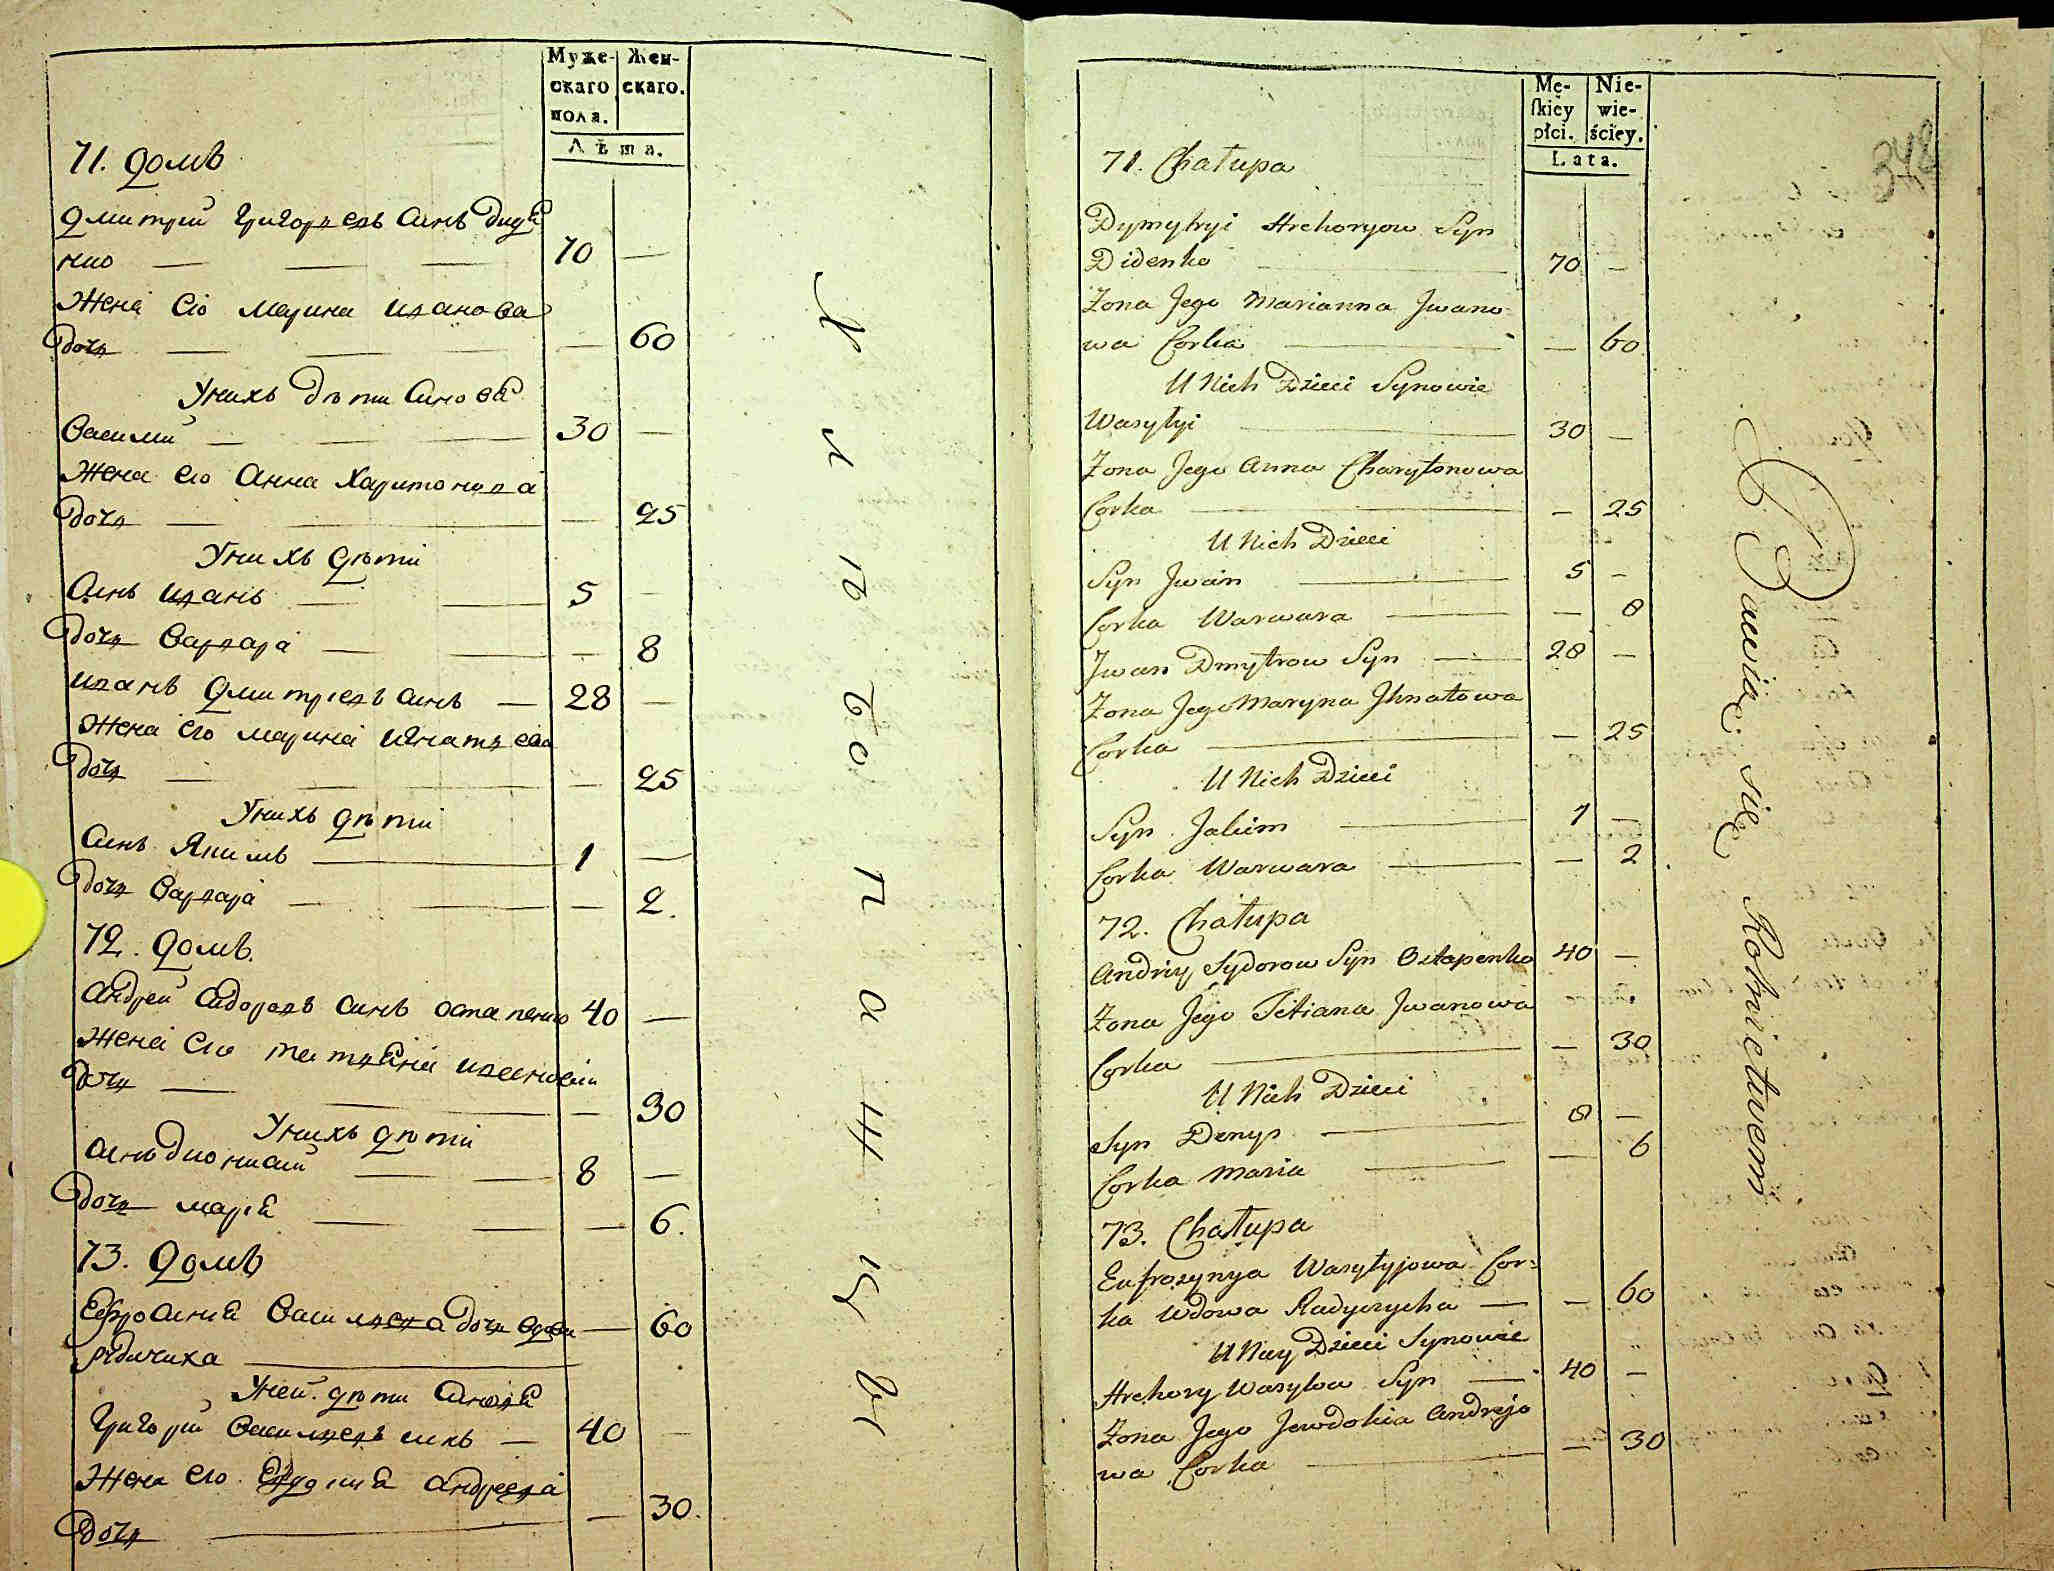 Муже- Жен-
скаго скаго.
пола.
Лѣта.
71. домъ
Дмитрій Григорьевъ сынъ Диде
нко — — — 70 —
Жена его Марина Иванова
дочь — — — — 60
У нихъ дѣти сыновя
Василій — — 30 —
Жена его Анна Харитонова
дочь — — — 25
У нихъ дѣти
сынъ Иванъ — — 5 —
дочь Варвара — — — 8
Иванъ Дмитріевъ сынъ — 28 —
Жена его Марина Игнатьева
дочь — — — 25
У нихъ дѣти
сынъ Якимъ — 1 —
дочь Варвара — — — 2.
72. домъ.
Андрей Сидоровъ сынъ Остапенко 40 —
Жена его Татьяна Ивановна
дочь — — — — 30
У нихъ дѣти
сынъ Дионисий — — 8 —
дочь Марія — — — 6.
73. домъ
Ефросинія Васильева дочь вдова — 60
Рядичиха —
У ней дѣти сыновя
Григорій Васильевъ сынъ — 40 —
Жена его Евдокия Андреева
дочь — — 30.
Хлѣбопашцы
Mę- Nie-
skiey wie-
płci. ściey.
Lata.
348
71. Chałupa
Dymytryi Hrehoryow Syn
Didenko — 70 —
Żona Jego Marianna Jwano-
wa Corka — — 60
U Nich Dzieci Synowie
Wasylyi — 30 —
Żona Jego Anna Charytonowa
Corka — — 25
U Nich Dzieci
Syn Jwan — 5 —
Corka Warwara — — 8
Jwan Dmytrow Syn — 28 —
Żona Jego Maryna Jhnatowa
Corka — — 25
U Nich Dzieci
Syn Jakim — 1 —
Corka Warwara — — 2
72. Chałupa
Andriy Sydorow Syn Ostapenko 40 —
Żona Jego Tetiana Jwanowa
Corka — — 30
U Nich Dzieci
Syn Denys — 8 —
Corka Maria — — 6
73. Chałupa
Eufrozynya Wasylyjowa Cor-
ka Wdowa Radyczycha — — 60
U Niey Dzieci Synowie
Hrehory Wasylow Syn — 40 —
Żona Jego Jewdokia Andrejo
wa Corka — — 30
Bawią się Rolnictwem